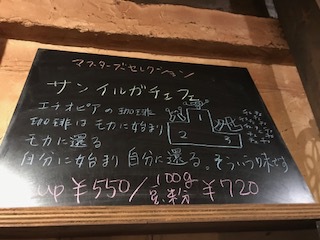 マスターズセレクション
サンイルガチェフェ
エチオピアの珈琲
珈琲はモカに始まり
モカに還る
自分に始まり自分に還る。そういう味です
1
2
3
cup ¥550/100g 豆・粉 ¥720